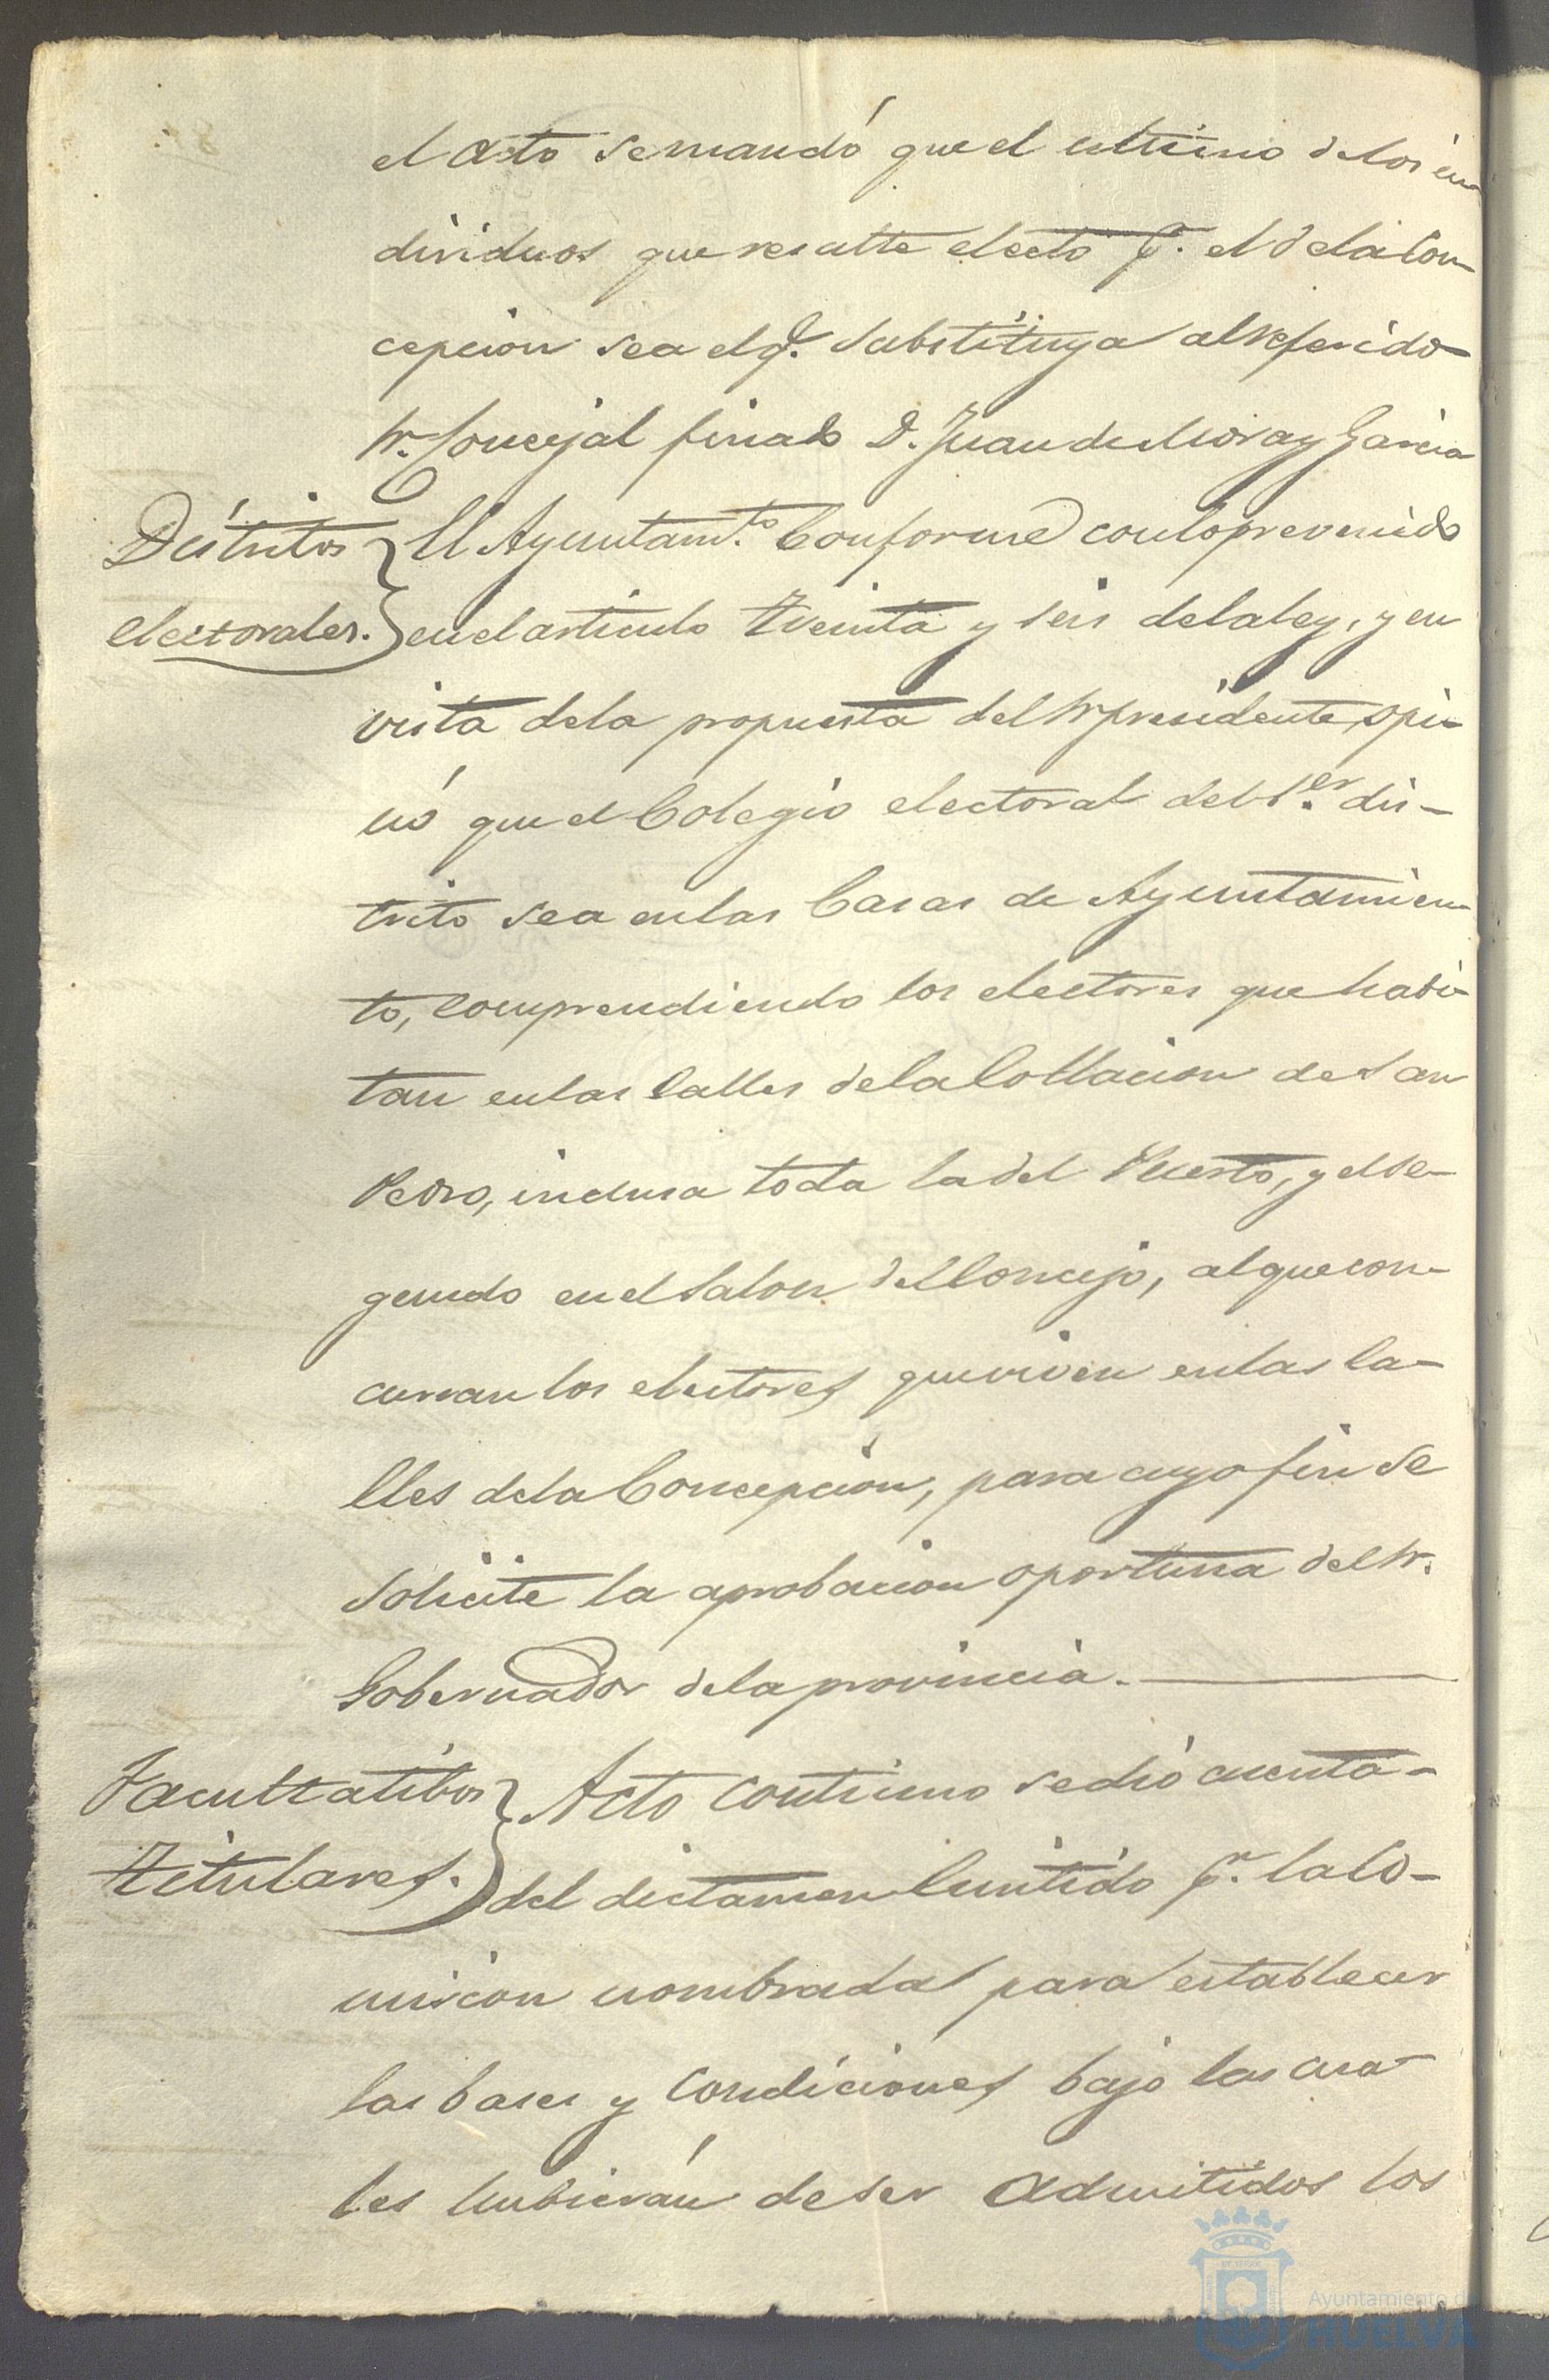 el acto se mandó que el ultimo de los in
dividuos que resulte electo p.r el de la Con-
cepcion sea el q.e substituya al referido
Sr. Concejal finado D. Juan de Mora y Garcia
Distritos
electorales.
El Ayuntam.to Conforme con lo prevenido
en el articulo treinta y seis de la ley, y en
vista de la propuesta del Sr presidente, opi-
nó que el Colegio electoral del 1.er dis-
trito sea en las Casas de Ayuntamien-
to, comprendiendo los electores que habi-
tan en las Calles de la Collacion de San
Pedro, inclusa toda la del Puerto, y el se-
gundo en el Salon del Concejo, al que con-
curran los electores que viven en las Ca-
lles de la Concepcion, para cuyo fin se
solicite la aprobacion oportuna del Sr.
Gobernador de la provincia.
Facultatibos
titulares.
Acto continuo se dió cuenta-
del dictamen Emitido p.r la Co-
mision nombrada para establecer
las bases y Condiciones bajo las cua-
les hubierán de ser Admitidos los
Ayuntamiento de
HUELVA